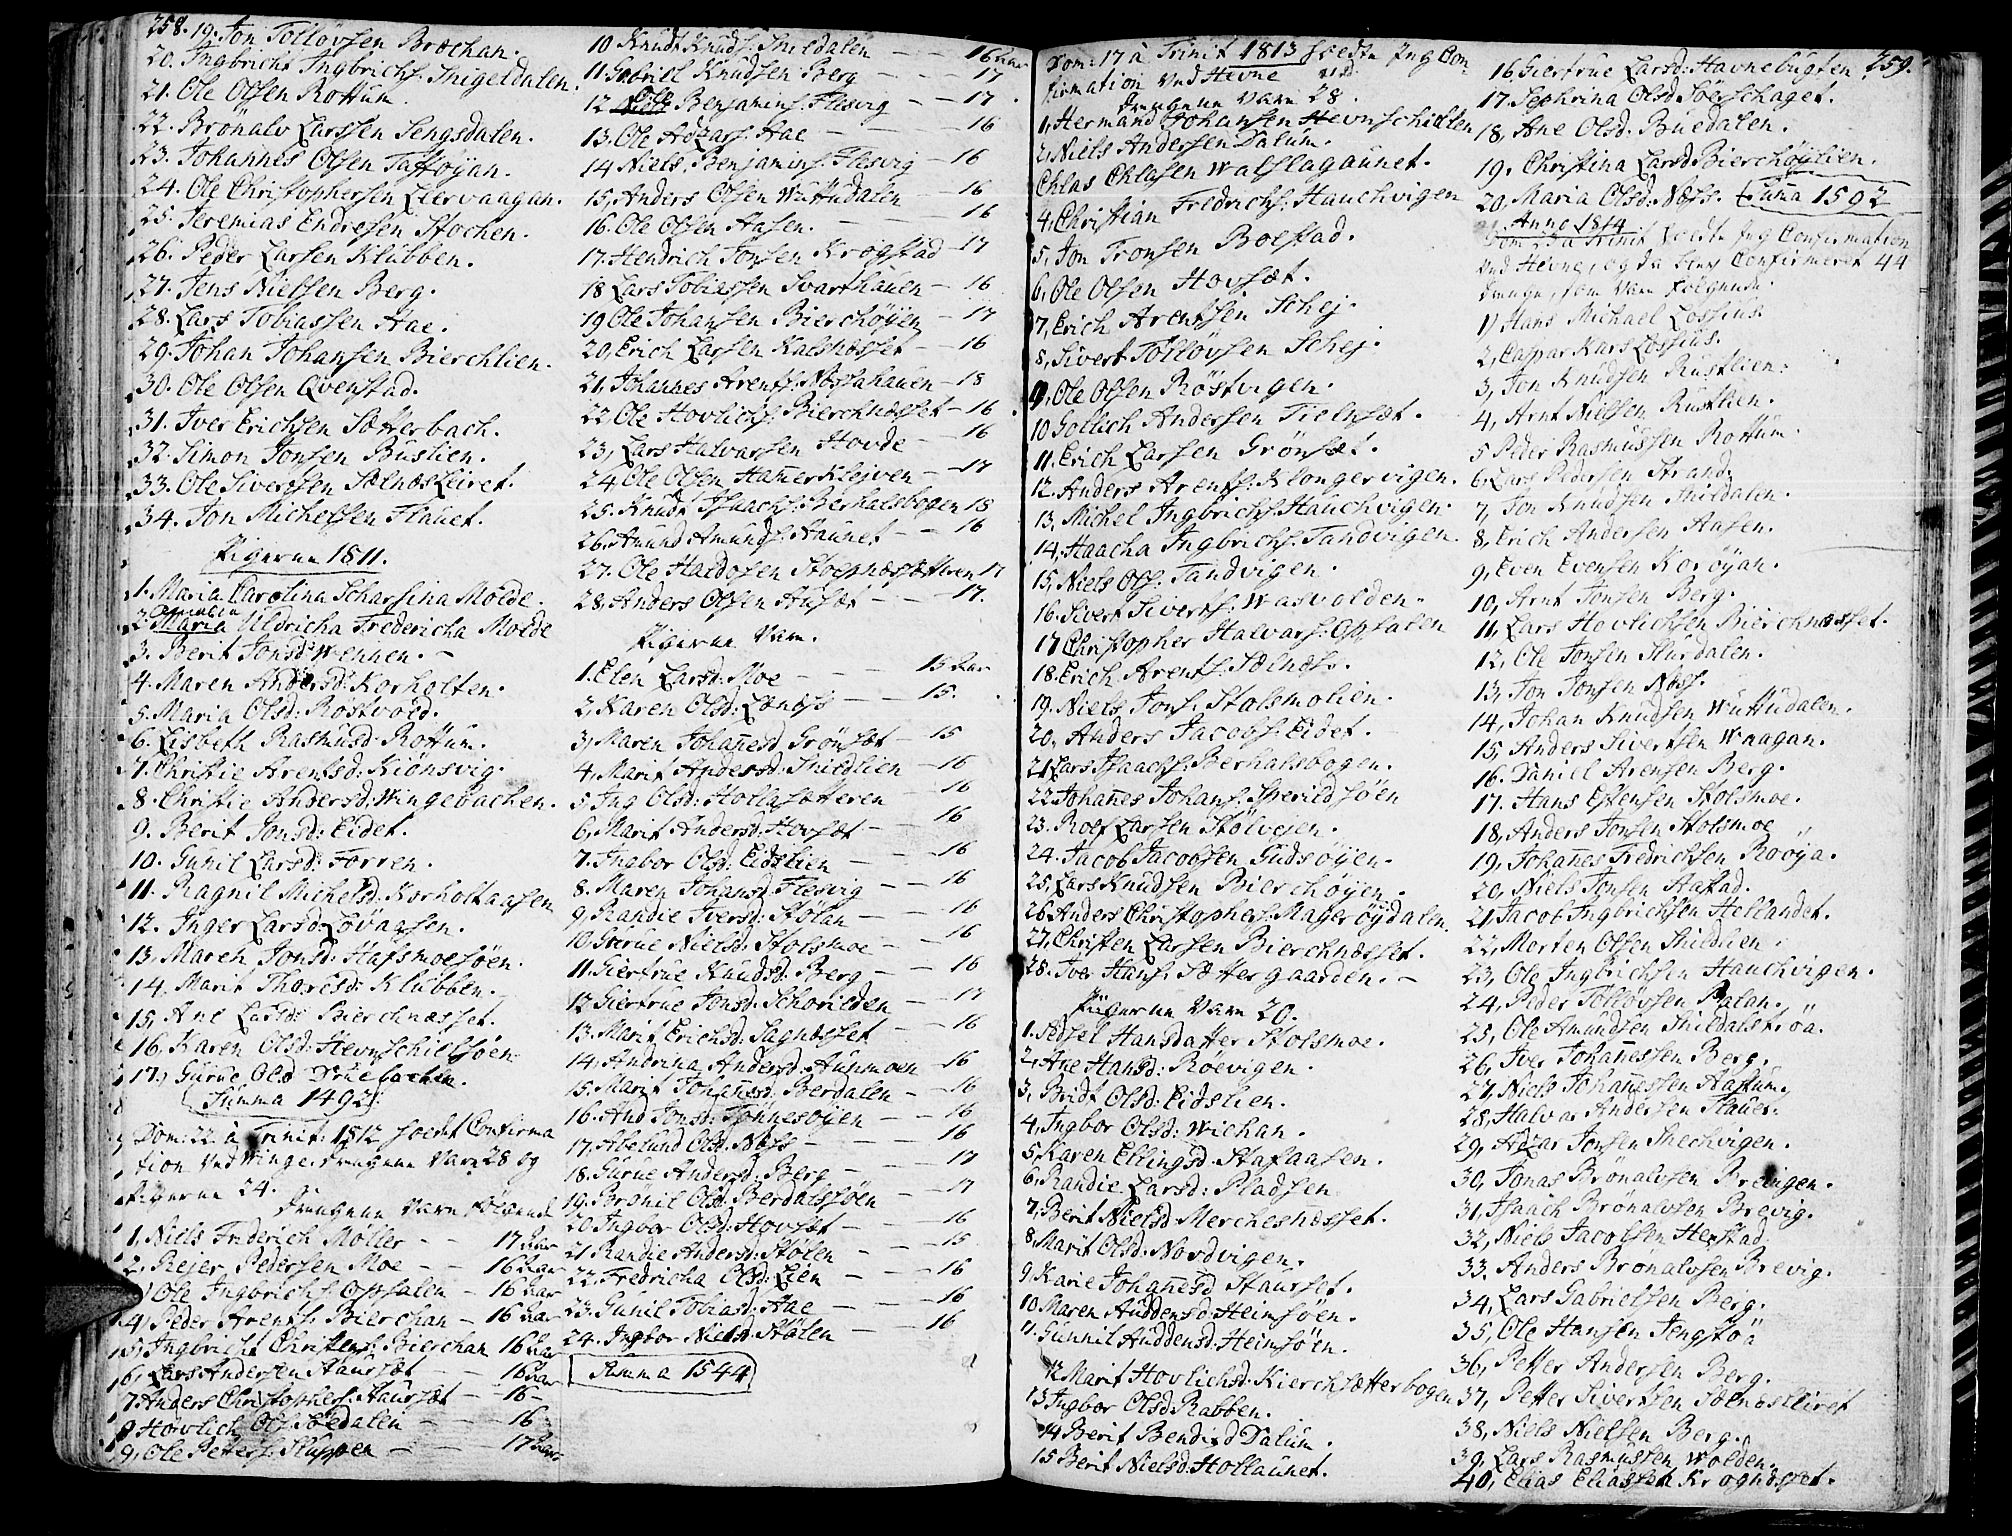 258. 19. Jon Tolløvsen Brochan.
20. Ingbricht Ingbrichs. Snigeldalen.
21. Ole Olsen Rottum.
22. Brönalv Larssen Sengsdalen.
23. Johannes Olsen Taftöyan.
24. Ole Christophersen Leervaagan.
25. Jeremias Endresen Stochen.
26. Peder Larsen Klubben.
27. Jens Nielsen Berg.
28. Lars Tobiassen Hae.
29. Johan Johansen Bierchlien.
30. Ole Olsen Qvenstad.
31. Iver Erichsen Sætterbach.
32. Simon Jonsen Buslien.
33. Ole Sivertsen SælnæsLeiret.
34. Jon Michelsen Flauet.
Pigerne 1811.
1. Maria Carolina Scharfina Molde.
2. Maria Uldricha Fredericha Molde
3. Berit Jonsd: Wennen. -
4. Maren Andersd: Korholten.
5. Maria Olsd: Rostvold.
6. Lisbeth Rasmusd: Rottum.
7. Christie Arentsd: Kiönsvig.
8. Christie Andersd: Wingebachen.
9. Berit Jonsd: Eidet.
10. Gunil Larsd: Torren.
11. Ragnil Michelsd: Korholtaasen
12. Inger Larsd: Lövaasen.
13. Mareh Jonsd: Hafsmoesöen.
14. Marit Thoresd: Klubben.
15. Ane Larsd: Bierchnæsset.
16. Karen Olsd: Hevnschielsöen
17. Gurue Olsd Druebachen.
Summa 1492.
Dom: 22 à Trinit: 1812 holdt Confirma
tion ved Winge. Drengene Vare 28 og
Pigerne 24.
Drengene Vare følgende
1, Niels Friderich Møller - - 17 Aar
2, Rejer Pedersen Moe - - 16 Aar
Ole Ingbrichs. Opsalen - 16 Aar
4, Peder Arents. Bierchan - 16 Aar
5, Ingbricht Christens. Bierchan 16 Aar
6, Lars Andersen Staursæt - 16 Aar
7 Anders Christophers. Staursæt - 16 -
8 Howlich Ols. Söedalen - - 16
9, Ole Petters. Sluppen - - 17 Aar
10 Knud Knuds. Snildalen - - 16 Aar
11. Gabriel Knudsen Berg - - 17
12 Ole Benjamins. Flesvig - - 17.
13. Ole Adzars. Hae - - 16
14 Niels. Benjamins. Flesvig - 16
15, Anders Olsen Wuttudalen - 16
16. Ole Olsen Hasen. - - 16
17. Hendrich Jonsen Krogstad - 17
18 Lars Tobiassen Svarthauen - 16
19 Ole Johansen Bierchöyen - 17
20, Erich Larsen Kalsnæsset - 16
21. Johannes Arents. Nostahauen - 18
22 Ole Hovlichs. Bierchnæsset - 16
23, Lars Halvarsen Hovde - 16
24 Ole Olsen HamerKlejven - 17
25. Knudt Isaachs. Berhalsbogen 18
26. Amund Amunds. Haunet - - 16
27. Ole Haldosen Stoepnæsætteren 17
28, Anders Olsen Husæt - - 17.
Pigerne Vare.
1. Elen Larsd: Moe - - 15 Aar
2, Karen Olsd: Lænæs - - 15.
3, Maren Johanesd Grönsæt - 15
4. Marit Andersd: Snildlien - 16
5. Ing Olsd: Hollasætteren - 16
6, Marit Andersd: Hovsæt - - 16
7. Ingbor Olsd: Eidslien - - 16
8. Maren Johansd: Flesvig - - 16
9, Randie Iversd: Stølan - - 16
10. Gurue Nielsd: Stolsmoe - - 16
11. Giertrue Knudsd: Berg - - 16
12 Giertrue Jonsd: Schorilden - 17
13. Marit Erichsd: Sagnæsset - 16
14, Andrina Andersd: Aunmoen - 16
15. Marit Johanesd: Berdalen - 16
16. And Jonsd: Tonnesøyen - 16
17, Abelund Olsd: Næss - - 16
18. Gurue Andersd: Berg - - 17
19. Brönil Olsd: Berdalssöen - 17
20 Ingbor Olsd: Hovsæt - - 16
21 Randie Andersd: Stølen - - 15
22. Fredricha Olsd: Lien - - 16
23. Gunil Tobiasd: Hae - - 16
24. Ingbor Nielsd: Stølen - - 16
Summa 1544
Dom: 17 à Trinit 1813 holdte Ing Con
firmation ved Hevne ved
Drengene Vare 28.
1, Hermand Johansen Hevnschillen
2, Niels Andersen Dalum.
Chlas Chlasen Walslagaunet.
4, Christian Fredrichs. Hauchvigen
5, Jon Tronsen Bolstad.
6, Ole Olsen Hovsæt.
7, Erich Arentsen Schej.
8, Sivert Tolløvsen Schej.
9, Ole Olsen Röstvigen.
10 Gollich Andersen Tielnsæt.
11. Erich Larsen Grönsæt.
12. Anders Arents. Klongervigen.
13. Michel Ingbrichs. Hauchvigen.
14. Haacha Ingbrichs. Tandvigen.
15, Niels Ols. Tandvigen.
16. Sivert Siverts. Wasvolden.
17 Christopher Halvars: Opsalen
18. Erich Arents. Sælnæs.
19. Niels Jons. Stolsmolien.
20, Anders Jacobs. Eidet.
21 Lars Isaachs. Berhalsbogen.
22 Johanes Johans. Sperildsöen
23. Rolf Larsen Stölvejen.
24. Jacob Jacobsen Gudsøyen.
25, Lars Knudsen Bierchöyen.
26. Anders Christophers. Magerøydalen.
27. Christen Larsen Bierchnæsset.
28. Iver Hans. Sættergaarden. -
Pigerne Vare 20.
1. Sedsel Hansdatter Stolsmoe.
2. Ane Hansd: Röevigen.
3, Bridt Olsd: Eidslien.
4, Ingbor Olsd: Wichan.
5, Karen Ellingsd: Stafaasen.
6, Randie Larsd: Pladsen.
7, Berit Nielsd Merchesnæsset.
8, Marit Olsd: Nordvigen.
9 Karie Johanesd Staurset.
10. Maren Auddensd: Heimsöen.
11. Gunnil Auddensd: Heimsöen.
12 Marit Hovlichsd: Kierchsætterbogen
13 Ingbor Olsd: Rabben.
14 Berit Bendixd Dalum.
15 Berit Nielsd: Hollaunet.
16 Giertrue Larsd: Havnebugten 259.
17. Sephrina Olsd: Soerschaget.
18, Ane Olsd: Buedalen.
19. Christina Larsd: Bierchöylien.
20. Maria Olsd: Næss. Suma 1592
Anno 1814
Dom 23 à Trinit holdte Ing Confirmation
ved Hevne, og da blev Confirmeret 44
Drenge, som Vare følgende.
1) Hans Michael Lossius.
2, Caspar Kars Lossius.
3, Jon Knudsen Rustlien.
4, Arnt Nielsen Rustlien.
5 Peder Rasmussen Rottum.
6. Lars Pedersen Strand.
7, Jon Knudsen Snildalen.
8, Erich Andersen Aasen.
9, Even Evensen Korøyan.
10, Arnt Jonsen Berg.
11, Lars Hovlichsen Bierchnæsset.
12, Ole Jonsen Slurdalen.
13, Jon Jonsen Næss.
14, Johan Knudsen Wuttudalen.
15, Anders Sivertsen Waagan.
16. Daniel Arensen Berg.
17. Hans Estensen Stolsmoe.
18, Anders Jonsen Stolsmoe
19, Johanes Fredrichsen Rooya.
20, Niels Jonsen Aastad.
21 Jacob Ingbrichsen Hellandet.
22, Morten Olsen Snildlien.
23, Ole Ingbrichsen Hauchvigen.
24, Peder Tolløvsen Palan.
25, Ole Amundsen Snildalströa.
26, Iver Johanessen Berg.
27, Niels Johanessen Hastum.
28, Halvar Andersen Flauet.
29, Adzar Jonsen Snechvigen.
30, Jonas Brönalvsen Brevigen.
31, Isaach Brönalvsen Brevig.
32, Niels Jacobsen Herstad.
33. Anders Brönalvsen Brevig.
34, Lars Gabrielsen Berg.
35, Ole Hansen Jengstöa
36, Petter Andersen Berg.
37, Petter Sivertsen Sælnæsleiret
38, Niels Nielsen Berg.
39, Lars Rasmussen Wolden.
40, Elias Eliassen Krognæsset.